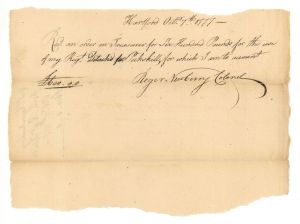 Hartford Octr. 7th. 1777 —
Recd an order on Treasurer for Six Hundred Pounds for the use
of my Regt. Detached for Peekskill, for which I am to account
£600..0.0 Roger Newberry Colonel